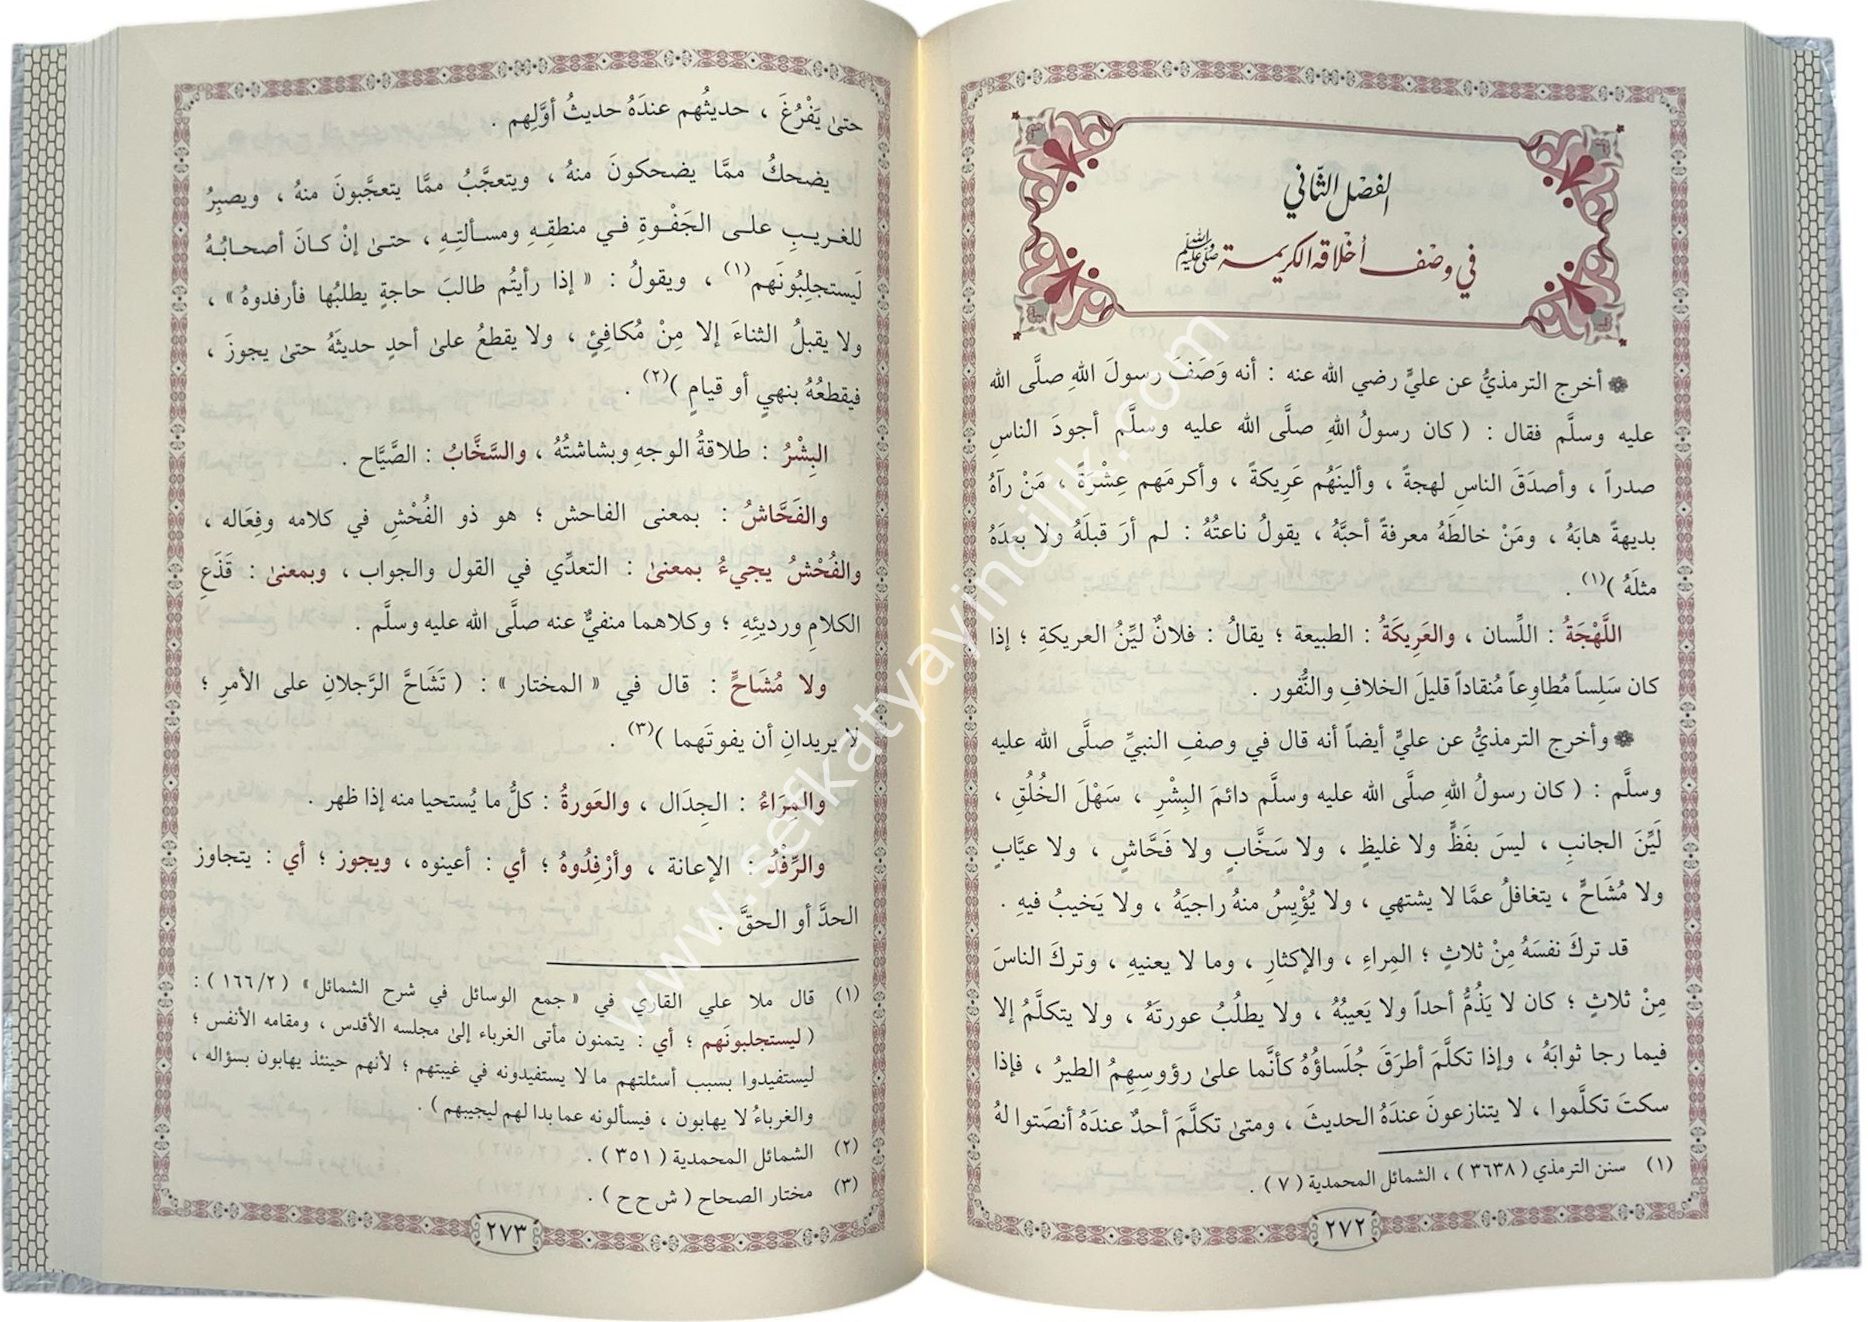 الفصل الثّاني
في وصف أخلاقه الكريمة ﷺ
أخرج الترمذيُّ عن عليٍّ رضي الله عنه : أنه وَصَفَ رسولَ اللهِ صلَّى الله
عليه وسلَّم فقال : ( كان رسولُ اللهِ صلَّى الله عليه وسلَّم أجودَ الناسِ
صدراً ، وأصدَقَ الناسِ لهجةً ، وألينَهُم عَرِيكةً ، وأكرمَهم عِشْرَةً ، مَنْ رآهُ
بديهةً هابَهُ ، ومَنْ خالطَهُ معرفةً أحبَّهُ ، يقولُ ناعتُهُ : لم أرَ قبلَهُ ولا بعدَهُ
مثلَهُ )(١) .
اللَّهْجَةُ : اللِّسان ، والعَرِيكَةُ : الطبيعة ؛ يقالُ : فلانٌ ليِّنُ العريكةِ ؛ إذا
كان سَلِساً مُطاوِعاً مُنقاداً قليلَ الخلافِ والنُّفور .
وأخرج الترمذيُّ عن عليٍّ أيضاً أنه قال في وصفِ النبيِّ صلَّى الله عليه
وسلَّم : ( كان رسولُ اللهِ صلَّى الله عليه وسلَّم دائمَ البِشْرِ ، سَهْلَ الخُلُقِ ،
لَيِّنَ الجانبِ ، ليسَ بفَظٍّ ولا غليظٍ ، ولا سَخَّابٍ ولا فَحَّاشٍ ، ولا عيَّابٍ
ولا مُشَاحٍّ ، يتغافلُ عمَّا لا يشتهي ، ولا يُؤْيِسُ منهُ راجيَهُ ، ولا يَخيبُ فيهِ .
قد تركَ نفسَهُ مِنْ ثلاثٍ ؛ المِراءِ ، والإكثارِ ، وما لا يعنيهِ ، وتركَ الناسَ
مِنْ ثلاثٍ ؛ كان لا يَذُمُّ أحداً ولا يَعيبُهُ ، ولا يطلُبُ عورتَهُ ، ولا يتكلَّمُ إلا
فيما رجا ثوابَهُ ، وإذا تكلَّمَ أطرَقَ جُلَساؤُهُ كأنَّما على رؤوسِهِمُ الطيرُ ، فإذا
سكتَ تكلَّموا ، لا يتنازعونَ عندَهُ الحديثَ ، ومتىٰ تكلَّمَ أحدٌ عندَهُ أنصَتوا لهُ
(١) سنن الترمذي ( ٣٦٣٨ ) ، الشمائل المحمدية ( ٧ ) .
٢٧٢
حتىٰ يَفْرُغَ ، حديثُهم عندَهُ حديثُ أوَّلِهم .
يضحكُ ممَّا يضحكونَ منهُ ، ويتعجَّبُ ممَّا يتعجَّبونَ منهُ ، ويصبِرُ
للغريبِ على الجَفْوةِ في منطقِهِ ومسألتِهِ ، حتىٰ إنْ كانَ أصحابُهُ
لَيستجلِبُونَهم(١) ، ويقولُ : « إذا رأيتُم طالبَ حاجةٍ يطلبُها فأرفدوهُ » ،
ولا يقبلُ الثناءَ إلا مِنْ مُكافِئٍ ، ولا يقطعُ علىٰ أحدٍ حديثَهُ حتىٰ يجوزَ ،
فيقطعُهُ بنهيٍ أو قيامٍ )(٢) .
البِشْرُ : طلاقةُ الوجهِ وبشاشتُهُ ، والسَّخَّابُ : الصَّيَّاح .
والفَحَّاشُ : بمعنى الفاحش ؛ هو ذو الفُحْشِ في كلامه وفِعَاله ،
والفُحْشُ يجيءُ بمعنىٰ : التعدِّي في القول والجواب ، وبمعنىٰ : قَذَعِ
الكلامِ ورديئِهِ ؛ وكلاهما منفيٌّ عنه صلَّى الله عليه وسلَّم .
ولا مُشَاحٍّ : قال في « المختار » : ( تَشَاحَّ الرَّجلانِ على الأمرِ ؛
لا يريدانِ أن يفوتَهما )(٣) .
والمِرَاءُ : الجِدَال ، والعَورةُ : كلُّ ما يُستحيا منه إذا ظهر .
والرِّفْدُ : الإعانة ، وأرْفِدُوهُ ؛ أي : أعينوه ، ويجوز ؛ أي : يتجاوز
الحدَّ أو الحقَّ .
(١) قال ملا علي القاري في « جمع الوسائل في شرح الشمائل » ( ١٦٦/٢ ) :
( ليستجلبونَهم ؛ أي : يتمنون مأتى الغرباء إلىٰ مجلسه الأقدس ، ومقامه الأنفس ؛
ليستفيدوا بسبب أسئلتهم ما لا يستفيدونه في غيبتهم ؛ لأنهم حينئذ يهابون بسؤاله ،
والغرباءُ لا يهابون ، فيسألونه عما بدا لهم ليجيبهم ) .
(٢) الشمائل المحمدية ( ٣٥١ ) .
(٣) مختار الصحاح ( ش ح ح ) .
٢٧٣
www.sefkatyayincilik.com